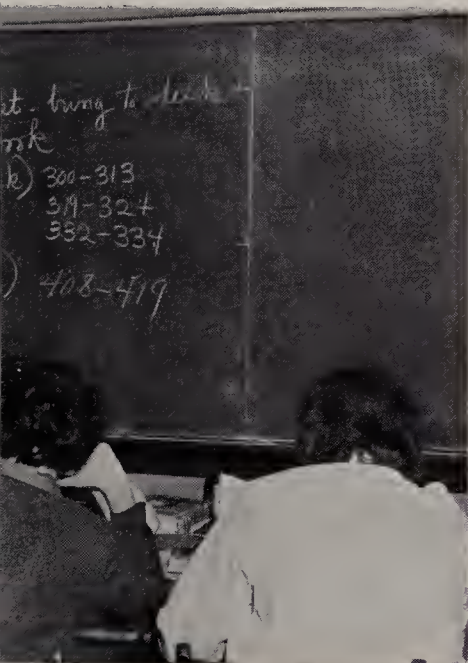 et - bring to desk
ook
k) 300-313
319-324
332-334
) 408-419